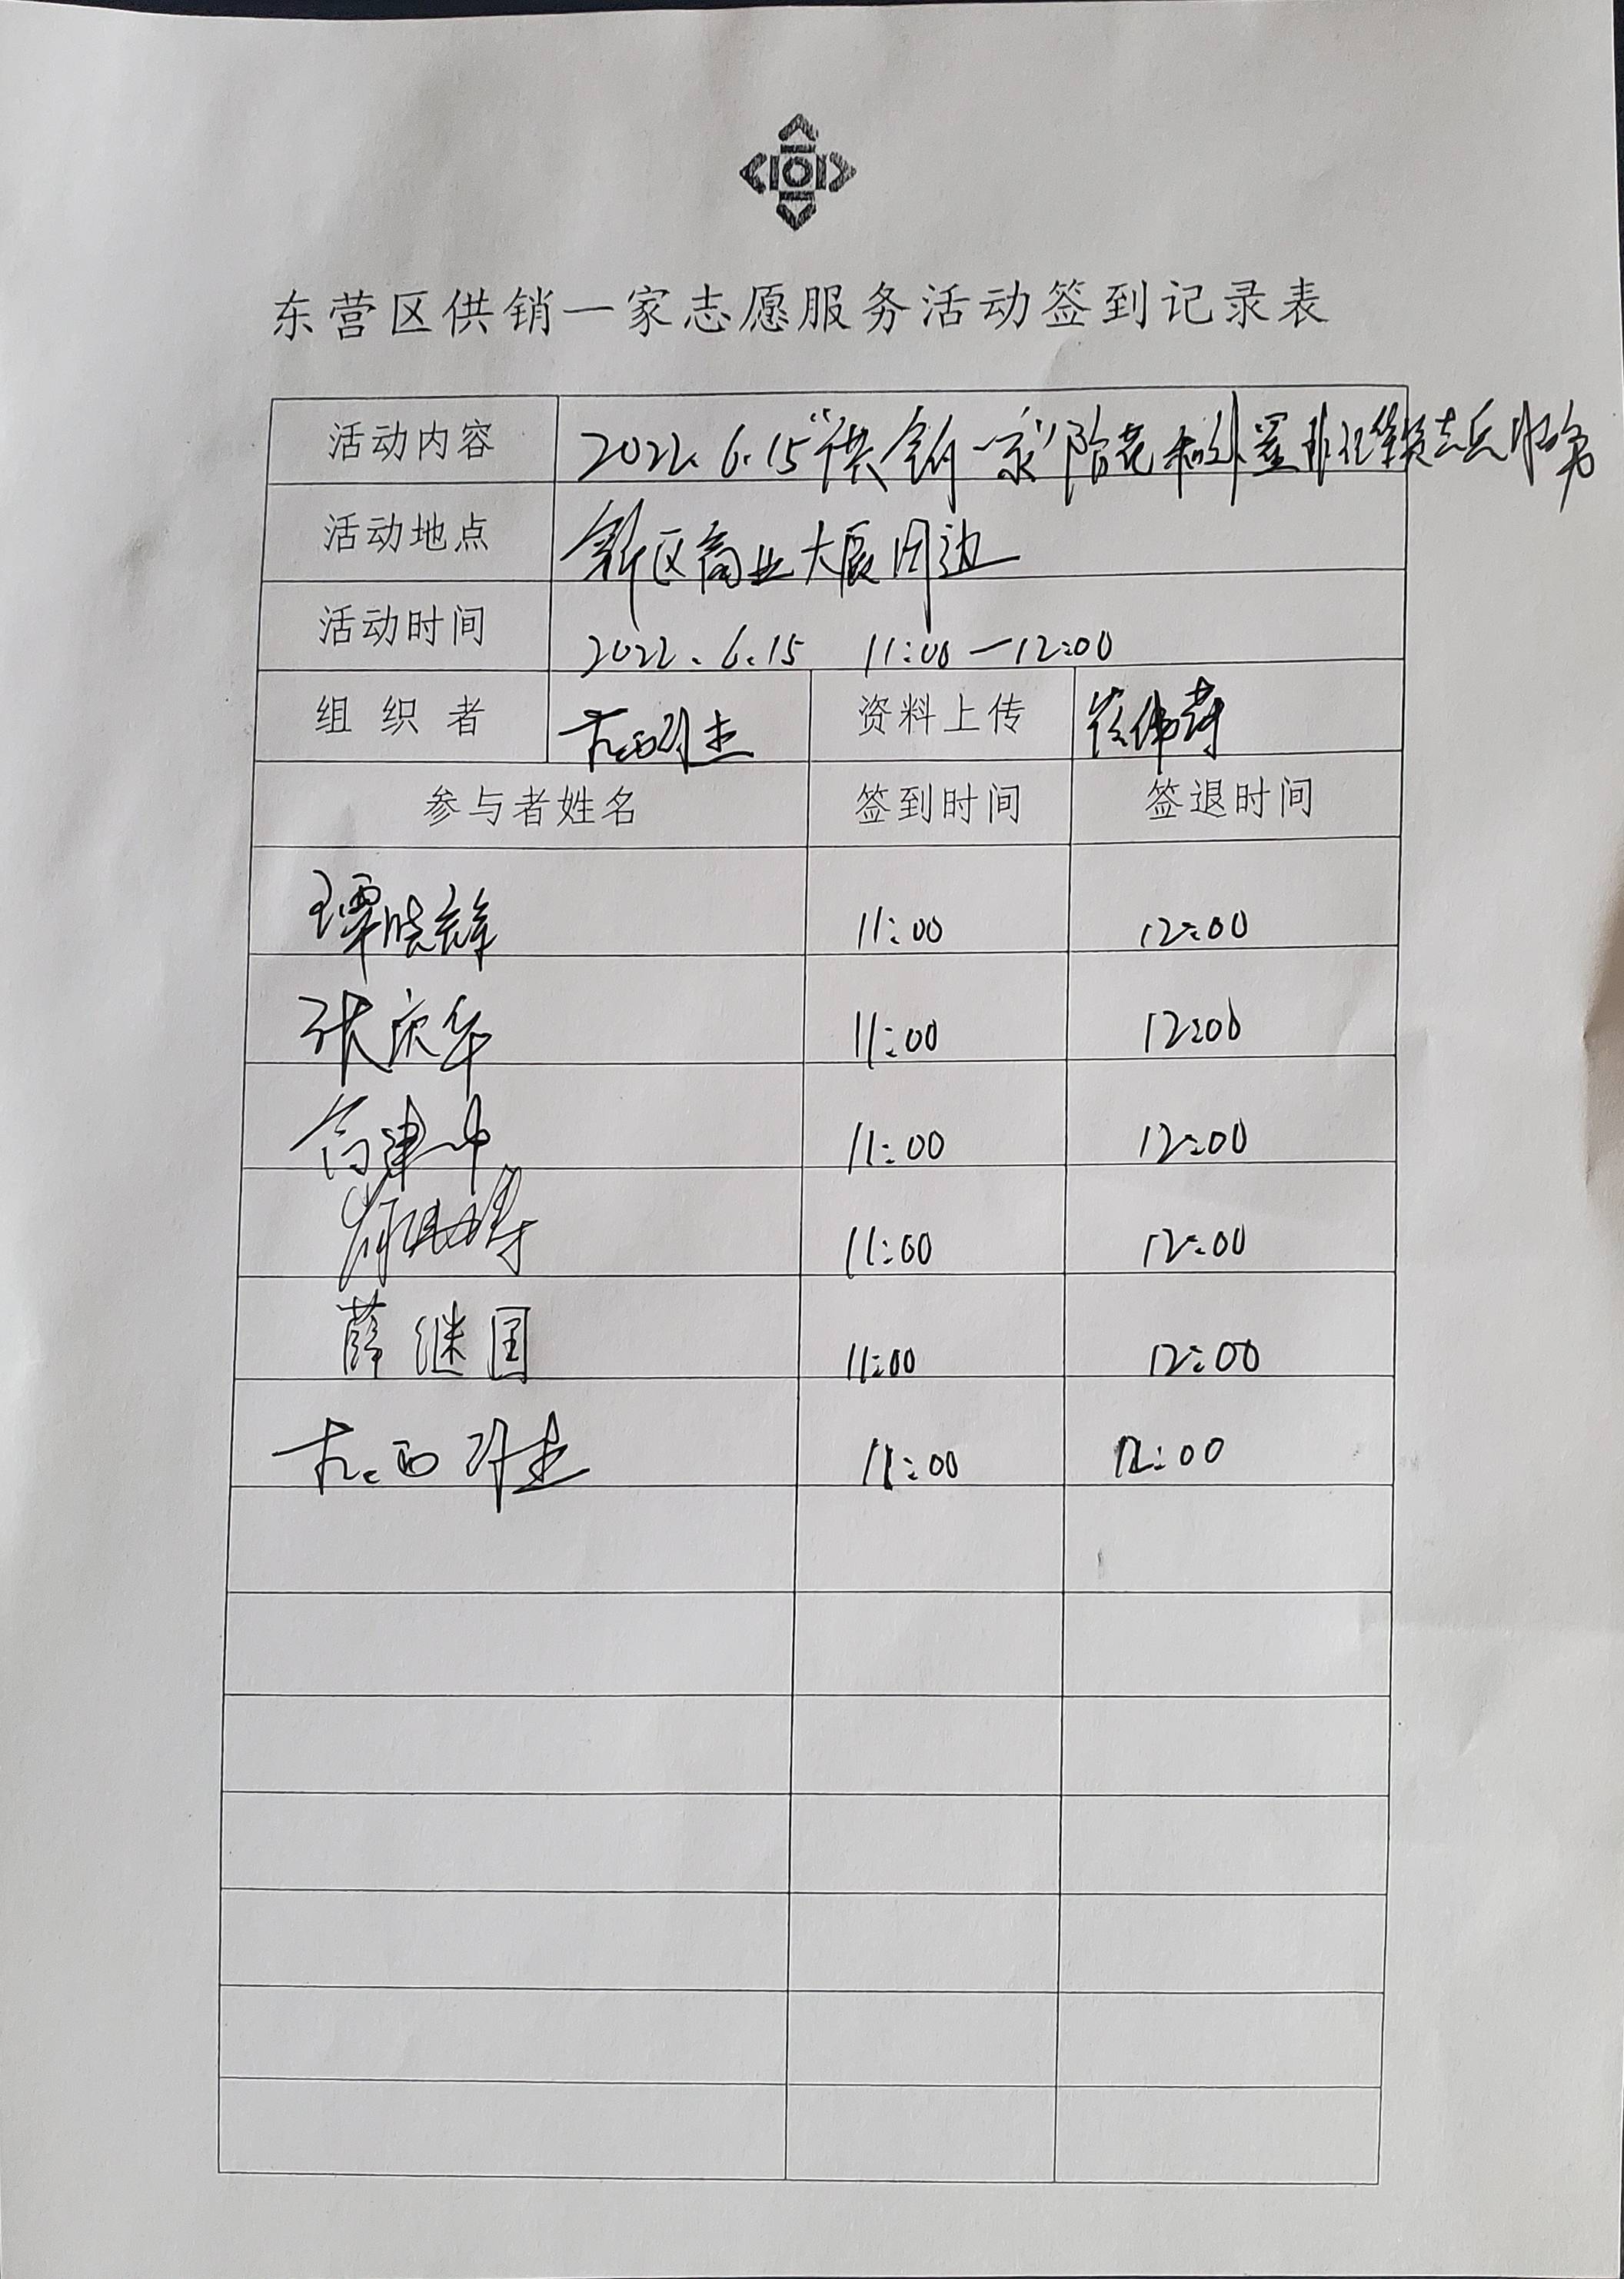 东营区供销一家志愿服务活动签到记录表
活动内容 2022.6.15“供销一家”
活动地点 新区商业大厦周边
活动时间 2022.6.15 11:00—12:00
组织者 资料上传
参与者姓名 签到时间 签退时间
谭晓锋 11:00 12:00
张庆华 11:00 12:00
高津中 11:00 12:00
11:00 12:00
薛继国 11:00 12:00
11:00 12:00